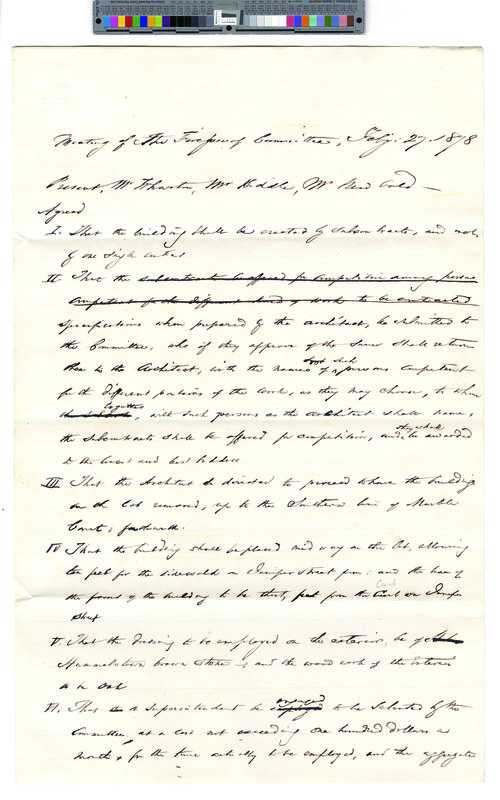 Meeting of the Fireproof Committee, Feby: 27. 1878
Present, Mr Thurston, Mr Riddle, Mr New bold —
Agreed
I. That the building shall be erected by subcontracts, and not
by one single contract
II That the subcontracts be offered for competition among persons
competent for the different kind of work to be contracted
specifications when prepared by the architect, be submitted to
the Committee, who if they approve of the same shall return
them to the Architect, with the names of such persons competent
for the different portions of the work, as they may choose, to whom
together, with such persons as the architect shall name,
the subcontracts shall be offered for competition, and they shall be awarded
to the lowest and best bidders
III That the Architect be directed to proceed to have the buildings
on the lot removed, up to the Southern line of Marble
Court, forthwith.
IV That the building shall be placed mid way on the lot, allowing
ten feet for the sidewalk on Juniper Street from: and the line of
the front of the building to be thirty feet from the Curb on Juniper
Street
V. That the dressing to be employed on the exterior, be of
Hummelstown brown stone; and the wood work of the interior
as in oak
VI. That a Superintendent be engaged to be selected by the
Committee, at a cost not exceeding one hundred dollars a
month, for the time actually to be employed, and the aggregate